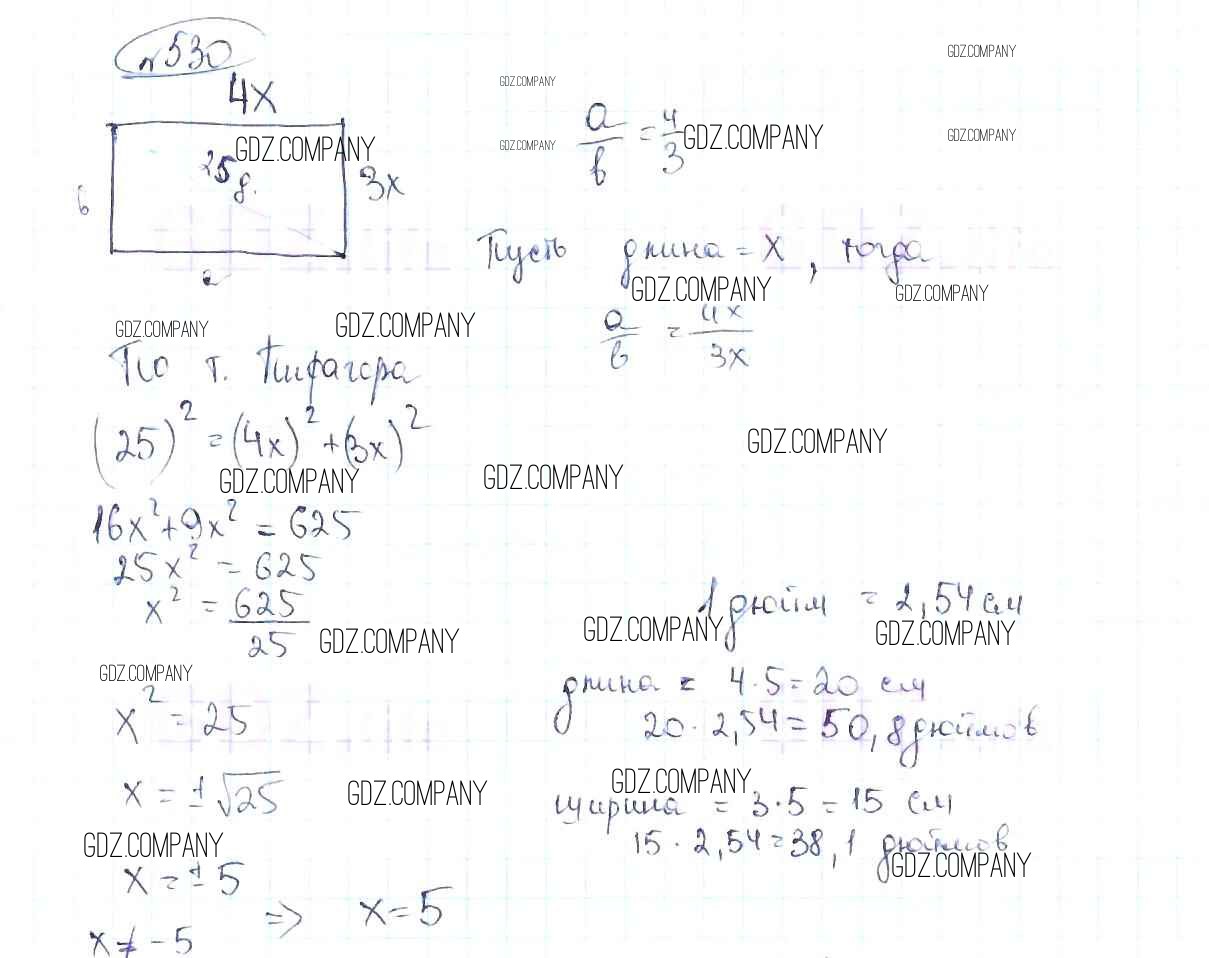 №530
4x
GDZ.COMPANY
GDZ.COMPANY
a/b = 4/3
GDZ.COMPANY
GDZ.COMPANY
GDZ.COMPANY
GDZ.COMPANY
25 д.
GDZ.COMPANY
3x
b
a
Пусть длина = x, тогда
GDZ.COMPANY
GDZ.COMPANY
a/b = 4x/3x
GDZ.COMPANY
GDZ.COMPANY
По т. Пифагора
(25)² = (4x)² + (3x)²
GDZ.COMPANY
GDZ.COMPANY
GDZ.COMPANY
16x² + 9x² = 625
25x² = 625
x² = 625/25
GDZ.COMPANY
GDZ.COMPANY
x² = 25
x = ±√25
GDZ.COMPANY
GDZ.COMPANY
x = ±5
x ≠ -5
=> x = 5
1 дюйм = 2,54 см
GDZ.COMPANY
GDZ.COMPANY
длина = 4·5 = 20 см
20·2,54 = 50,8 дюймов
GDZ.COMPANY
ширина = 3·5 = 15 см
15·2,54 = 38,1 дюймов
GDZ.COMPANY